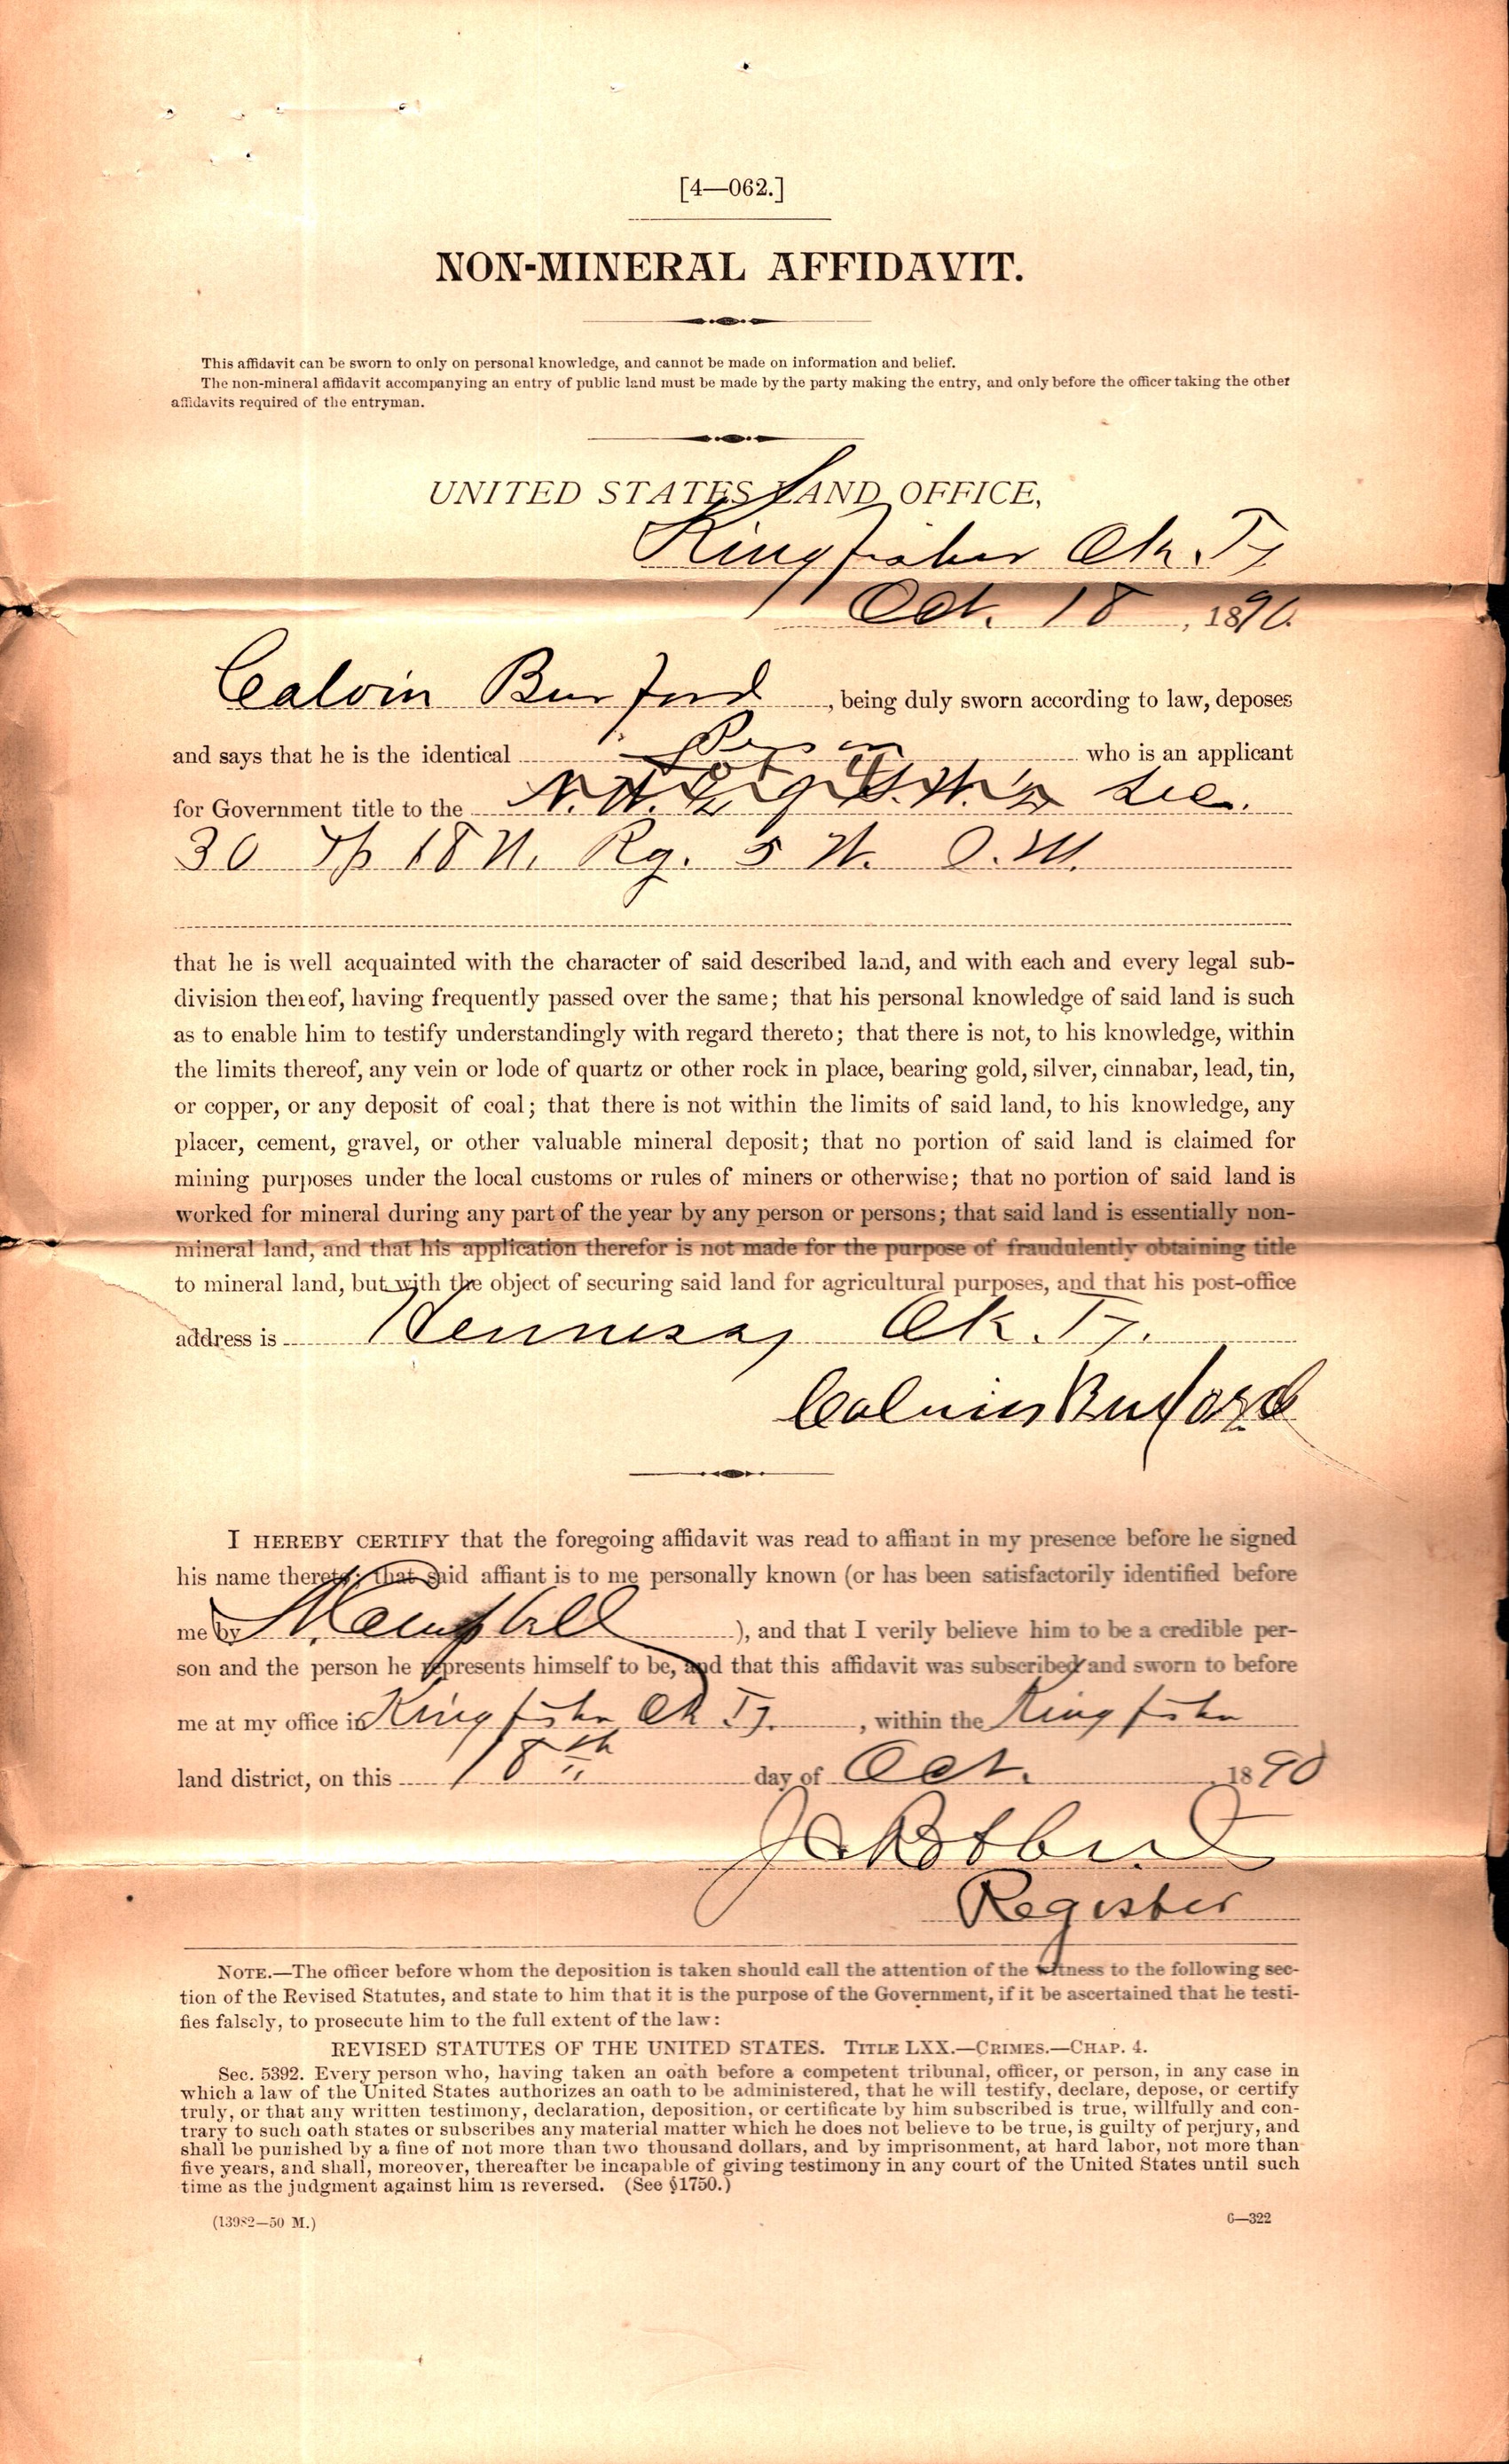 [4—062.]
NON-MINERAL AFFIDAVIT.
This affidavit can be sworn to only on personal knowledge, and cannot be made on information and belief.
The non-mineral affidavit accompanying an entry of public land must be made by the party making the entry, and only before the officer taking the other
affidavits required of the entryman.
UNITED STATES LAND OFFICE,
Kingfisher Ok. Ty
Oct. 18, 1890.
Calvin Burford, being duly sworn according to law, deposes
and says that he is the identical Person who is an applicant
for Government title to the Sec.
30 Tp 18 N. Rg. 5 W. I.M.
that he is well acquainted with the character of said described land, and with each and every legal sub-
division thereof, having frequently passed over the same; that his personal knowledge of said land is such
as to enable him to testify understandingly with regard thereto; that there is not, to his knowledge, within
the limits thereof, any vein or lode of quartz or other rock in place, bearing gold, silver, cinnabar, lead, tin,
or copper, or any deposit of coal; that there is not within the limits of said land, to his knowledge, any
placer, cement, gravel, or other valuable mineral deposit; that no portion of said land is claimed for
mining purposes under the local customs or rules of miners or otherwise; that no portion of said land is
worked for mineral during any part of the year by any person or persons; that said land is essentially non-
mineral land, and that his application therefor is not made for the purpose of fraudulently obtaining title
to mineral land, but with the object of securing said land for agricultural purposes, and that his post-office
address is Hennessy Ok. Ty.
Calvin Burford
I HEREBY CERTIFY that the foregoing affidavit was read to affiant in my presence before he signed
his name thereto; that said affiant is to me personally known (or has been satisfactorily identified before
me by Campbell ), and that I verily believe him to be a credible per-
son and the person he represents himself to be, and that this affidavit was subscribed and sworn to before
me at my office in Kingfisher Ok Ty., within the Kingfisher
land district, on this 18th day of Oct., 1890
Register
NOTE.—The officer before whom the deposition is taken should call the attention of the witness to the following sec-
tion of the Revised Statutes, and state to him that it is the purpose of the Government, if it be ascertained that he testi-
fies falsely, to prosecute him to the full extent of the law:
REVISED STATUTES OF THE UNITED STATES. TITLE LXX.—CRIMES.—CHAP. 4.
Sec. 5392. Every person who, having taken an oath before a competent tribunal, officer, or person, in any case in
which a law of the United States authorizes an oath to be administered, that he will testify, declare, depose, or certify
truly, or that any written testimony, declaration, deposition, or certificate by him subscribed is true, willfully and con-
trary to such oath states or subscribes any material matter which he does not believe to be true, is guilty of perjury, and
shall be punished by a fine of not more than two thousand dollars, and by imprisonment, at hard labor, not more than
five years, and shall, moreover, thereafter be incapable of giving testimony in any court of the United States until such
time as the judgment against him is reversed. (See §1750.)
(13982—50 M.)
6—322